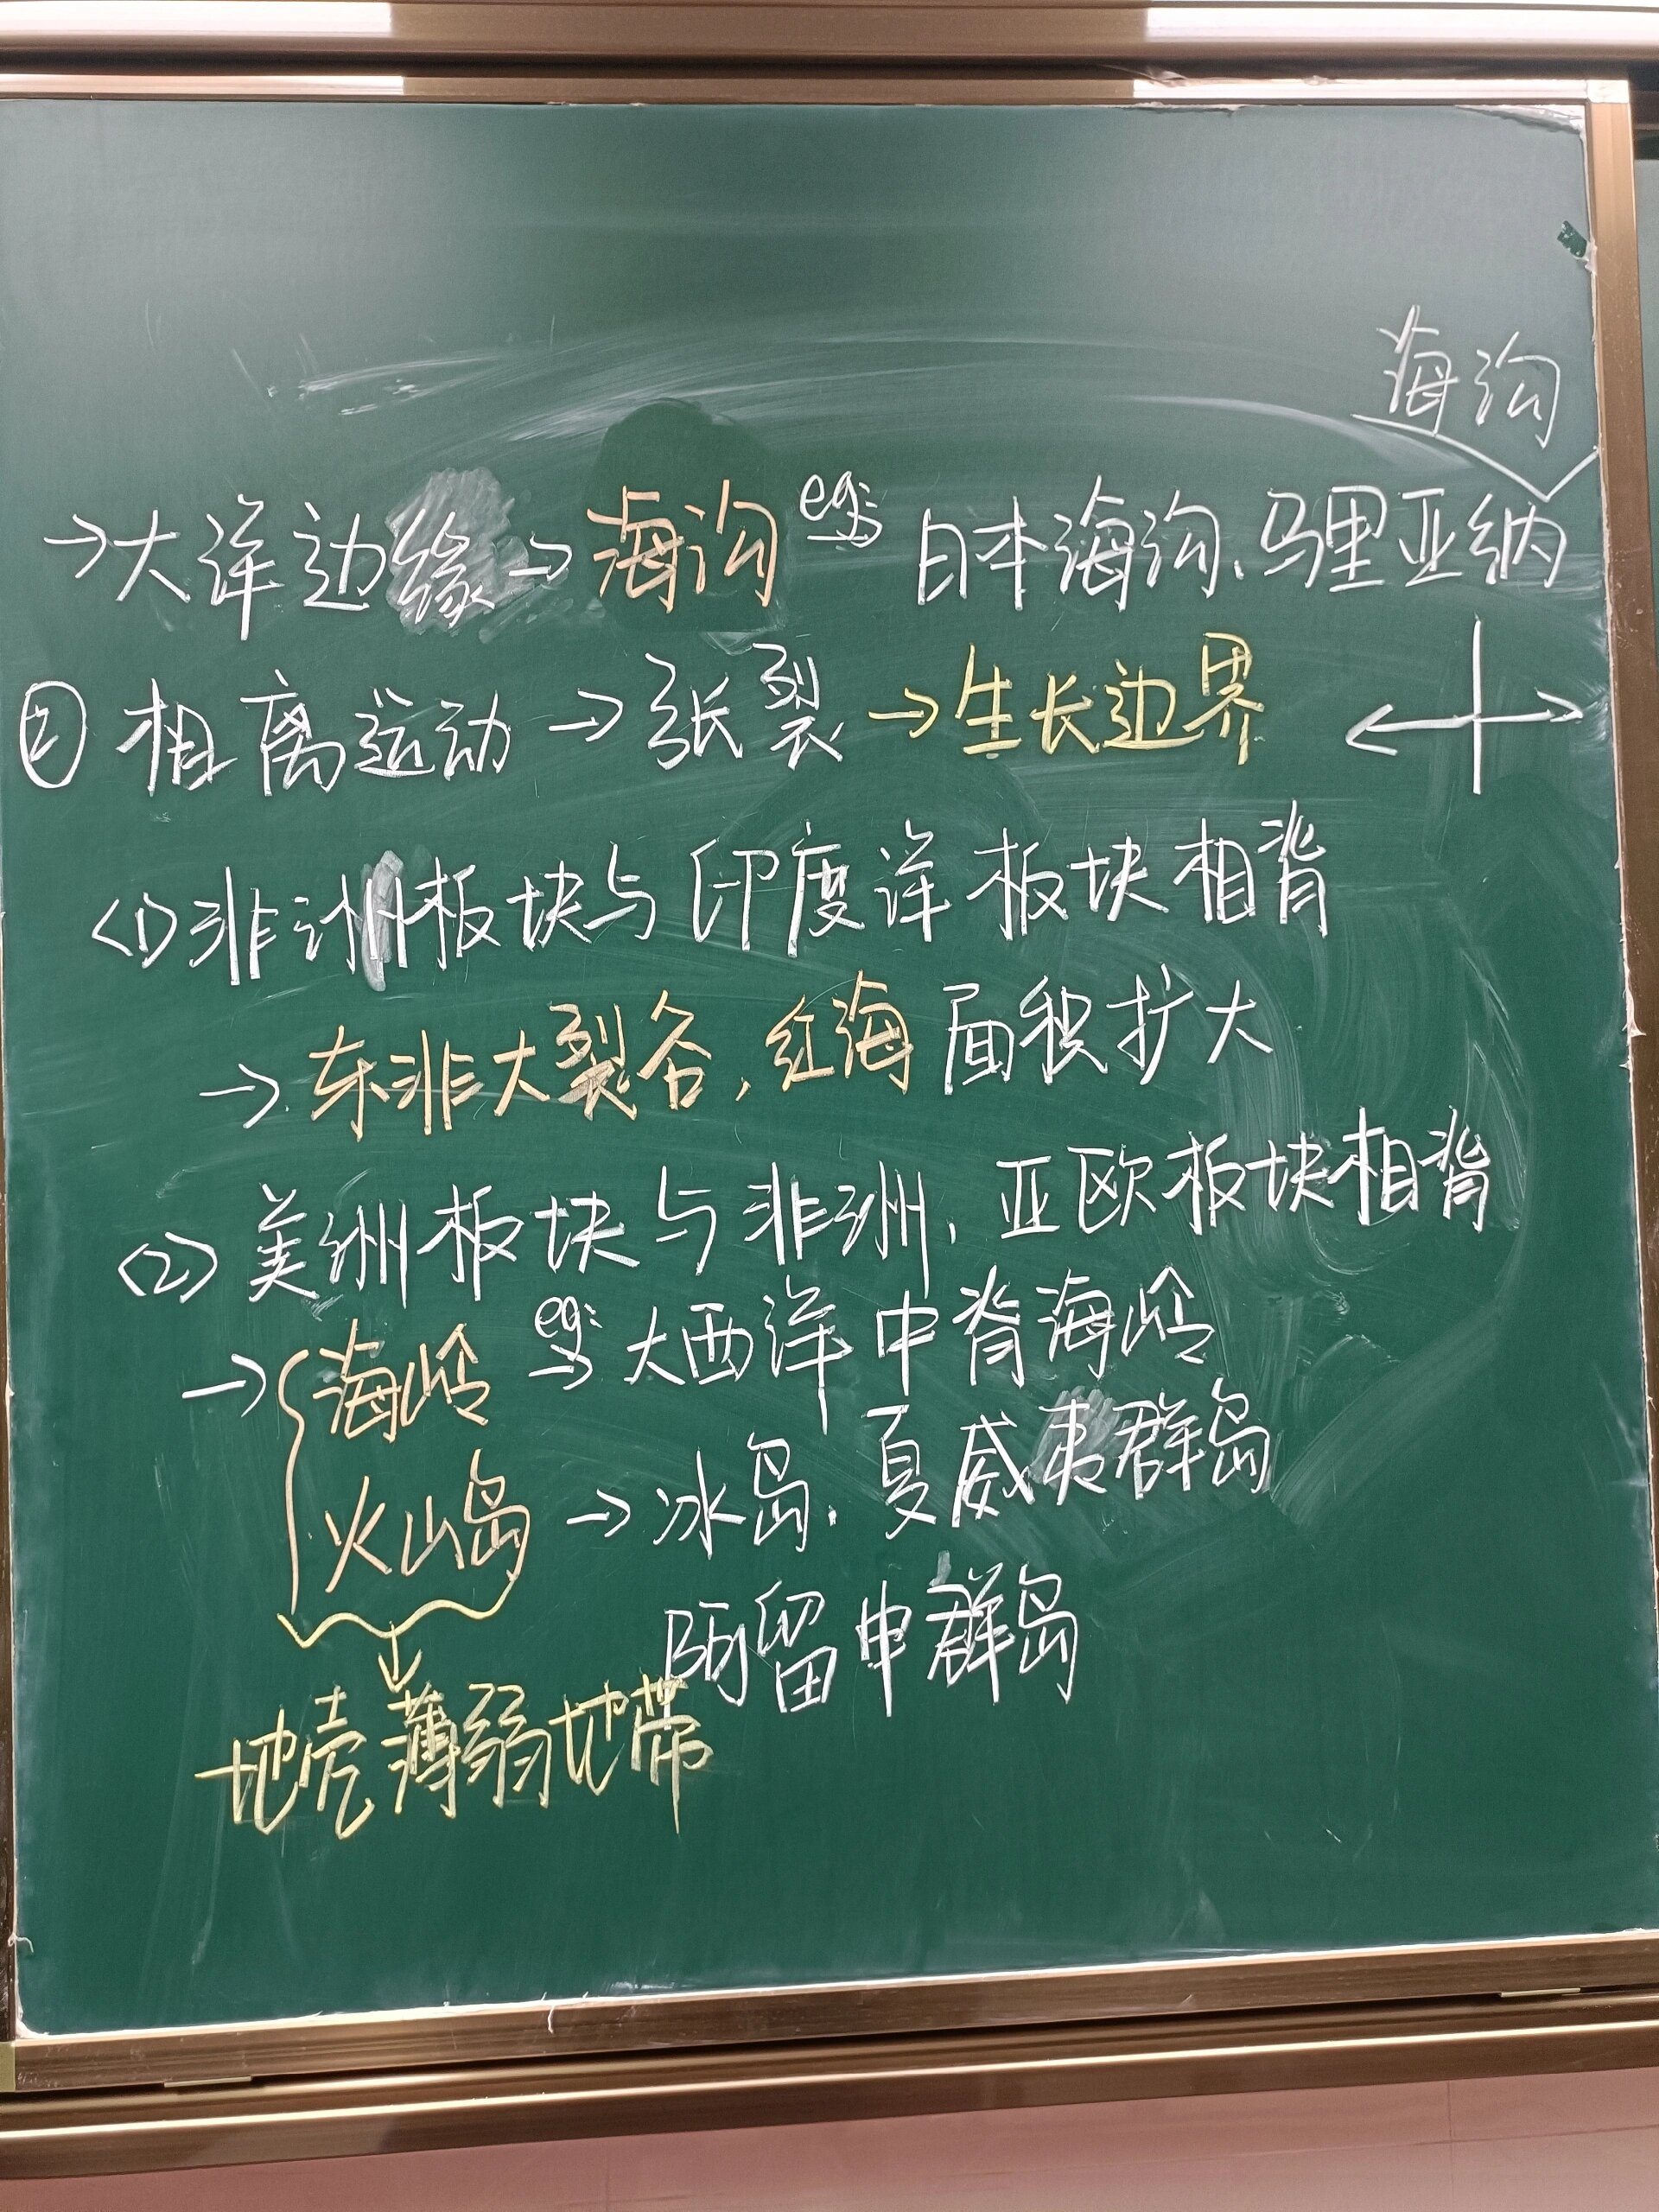 海沟
→大洋边缘→海沟 eg:→ 日本海沟、马里亚纳
② 相离运动→张裂→生长边界
(1)非洲板块与印度洋板块相背
→东非大裂谷,红海面积扩大
(2)美洲板块与非洲、亚欧板块相背
→{海岭 eg:→ 大西洋中脊海岭
火山岛→冰岛、夏威夷群岛
阿留申群岛
地壳薄弱地带